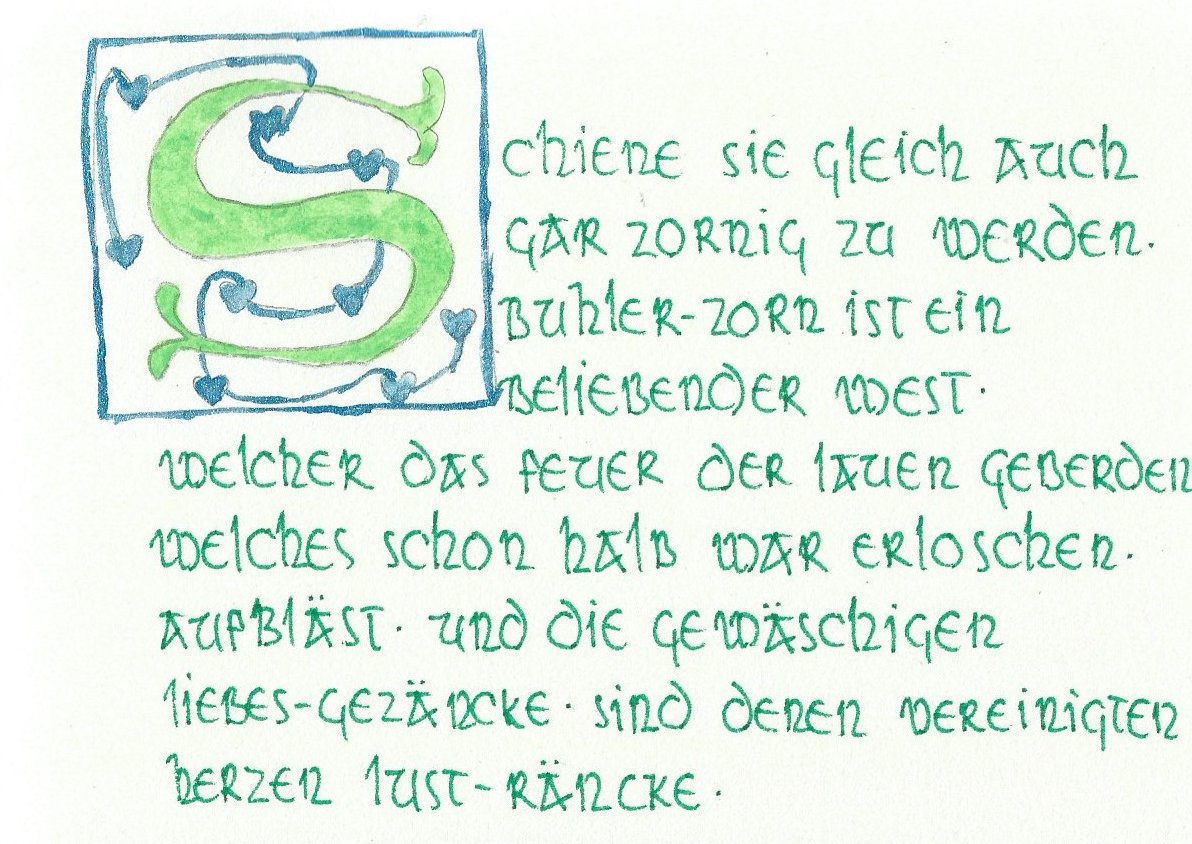 Schiene sie gleich auch
gar zornig zu werden.
Buhler-zorn ist ein
beliebender West.
welcher das feuer der lauen geberden
welches schon halb war erloschen.
aufbläst. und die gewäschigen
liebes-gezäncke. sind denen vereinigten
herzen lust-räncke.